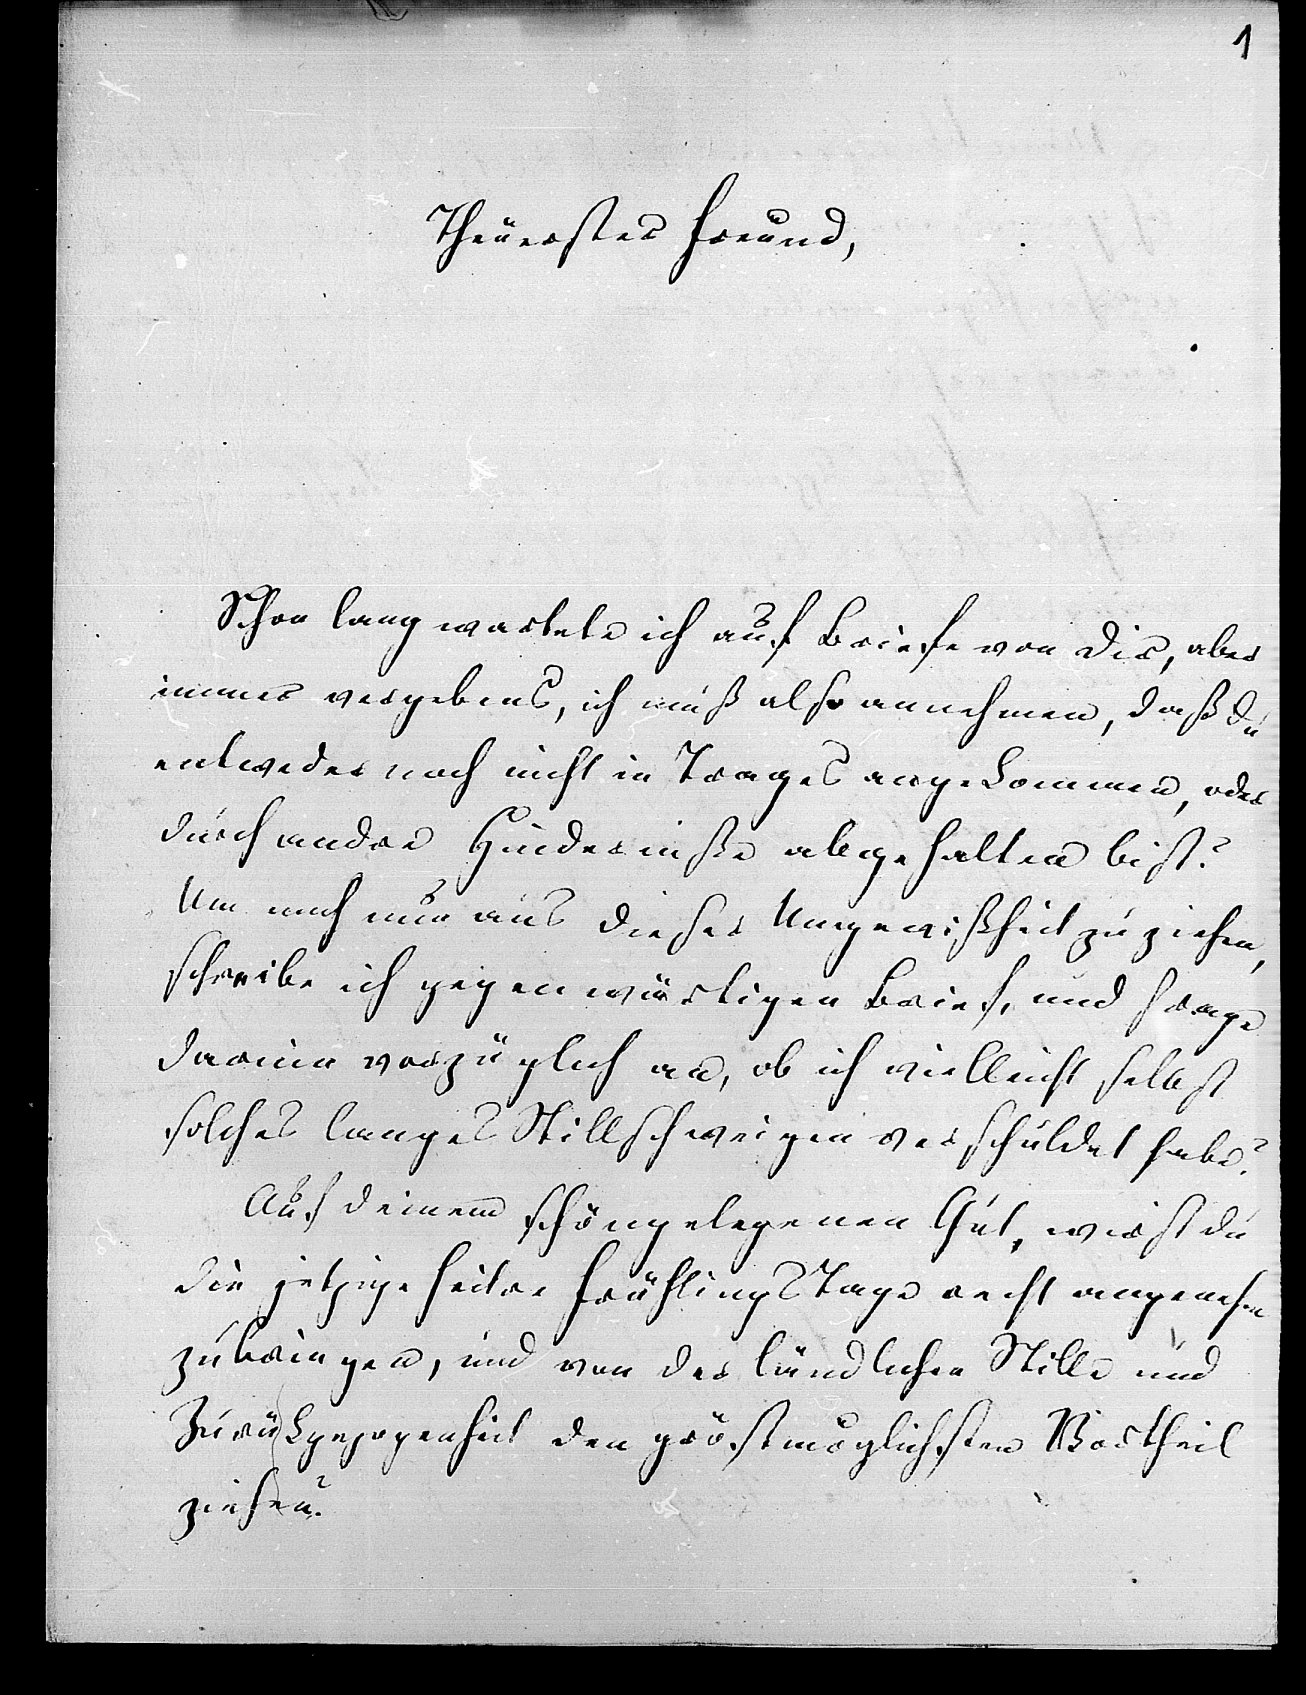 1
Theuerster Freund,
Schon lang wartete ich auf Briefe von Dir, aber
immer vergebens, ich muß also annehmen, daß du
entweder noch nicht in Trages angekommen, oder
durch andre Hinderniße abgehalten bist?
Um mich nun aus dieser Ungewißheit zu ziehen,
schreibe ich gegenwärtigen Brief, und frage
darinn vorzüglich an, ob ich vielleicht selbst
solches langes Stillschweigen verschuldet habe?
Auf deinem schöngelegenen Gut, wirst du
die jetzige heitre FrühlingsTage recht angenehm
zubringen, und von der ländlichen Stille und
Zurückgezogenheit den gröstmöglichsten Vortheil
ziehen?